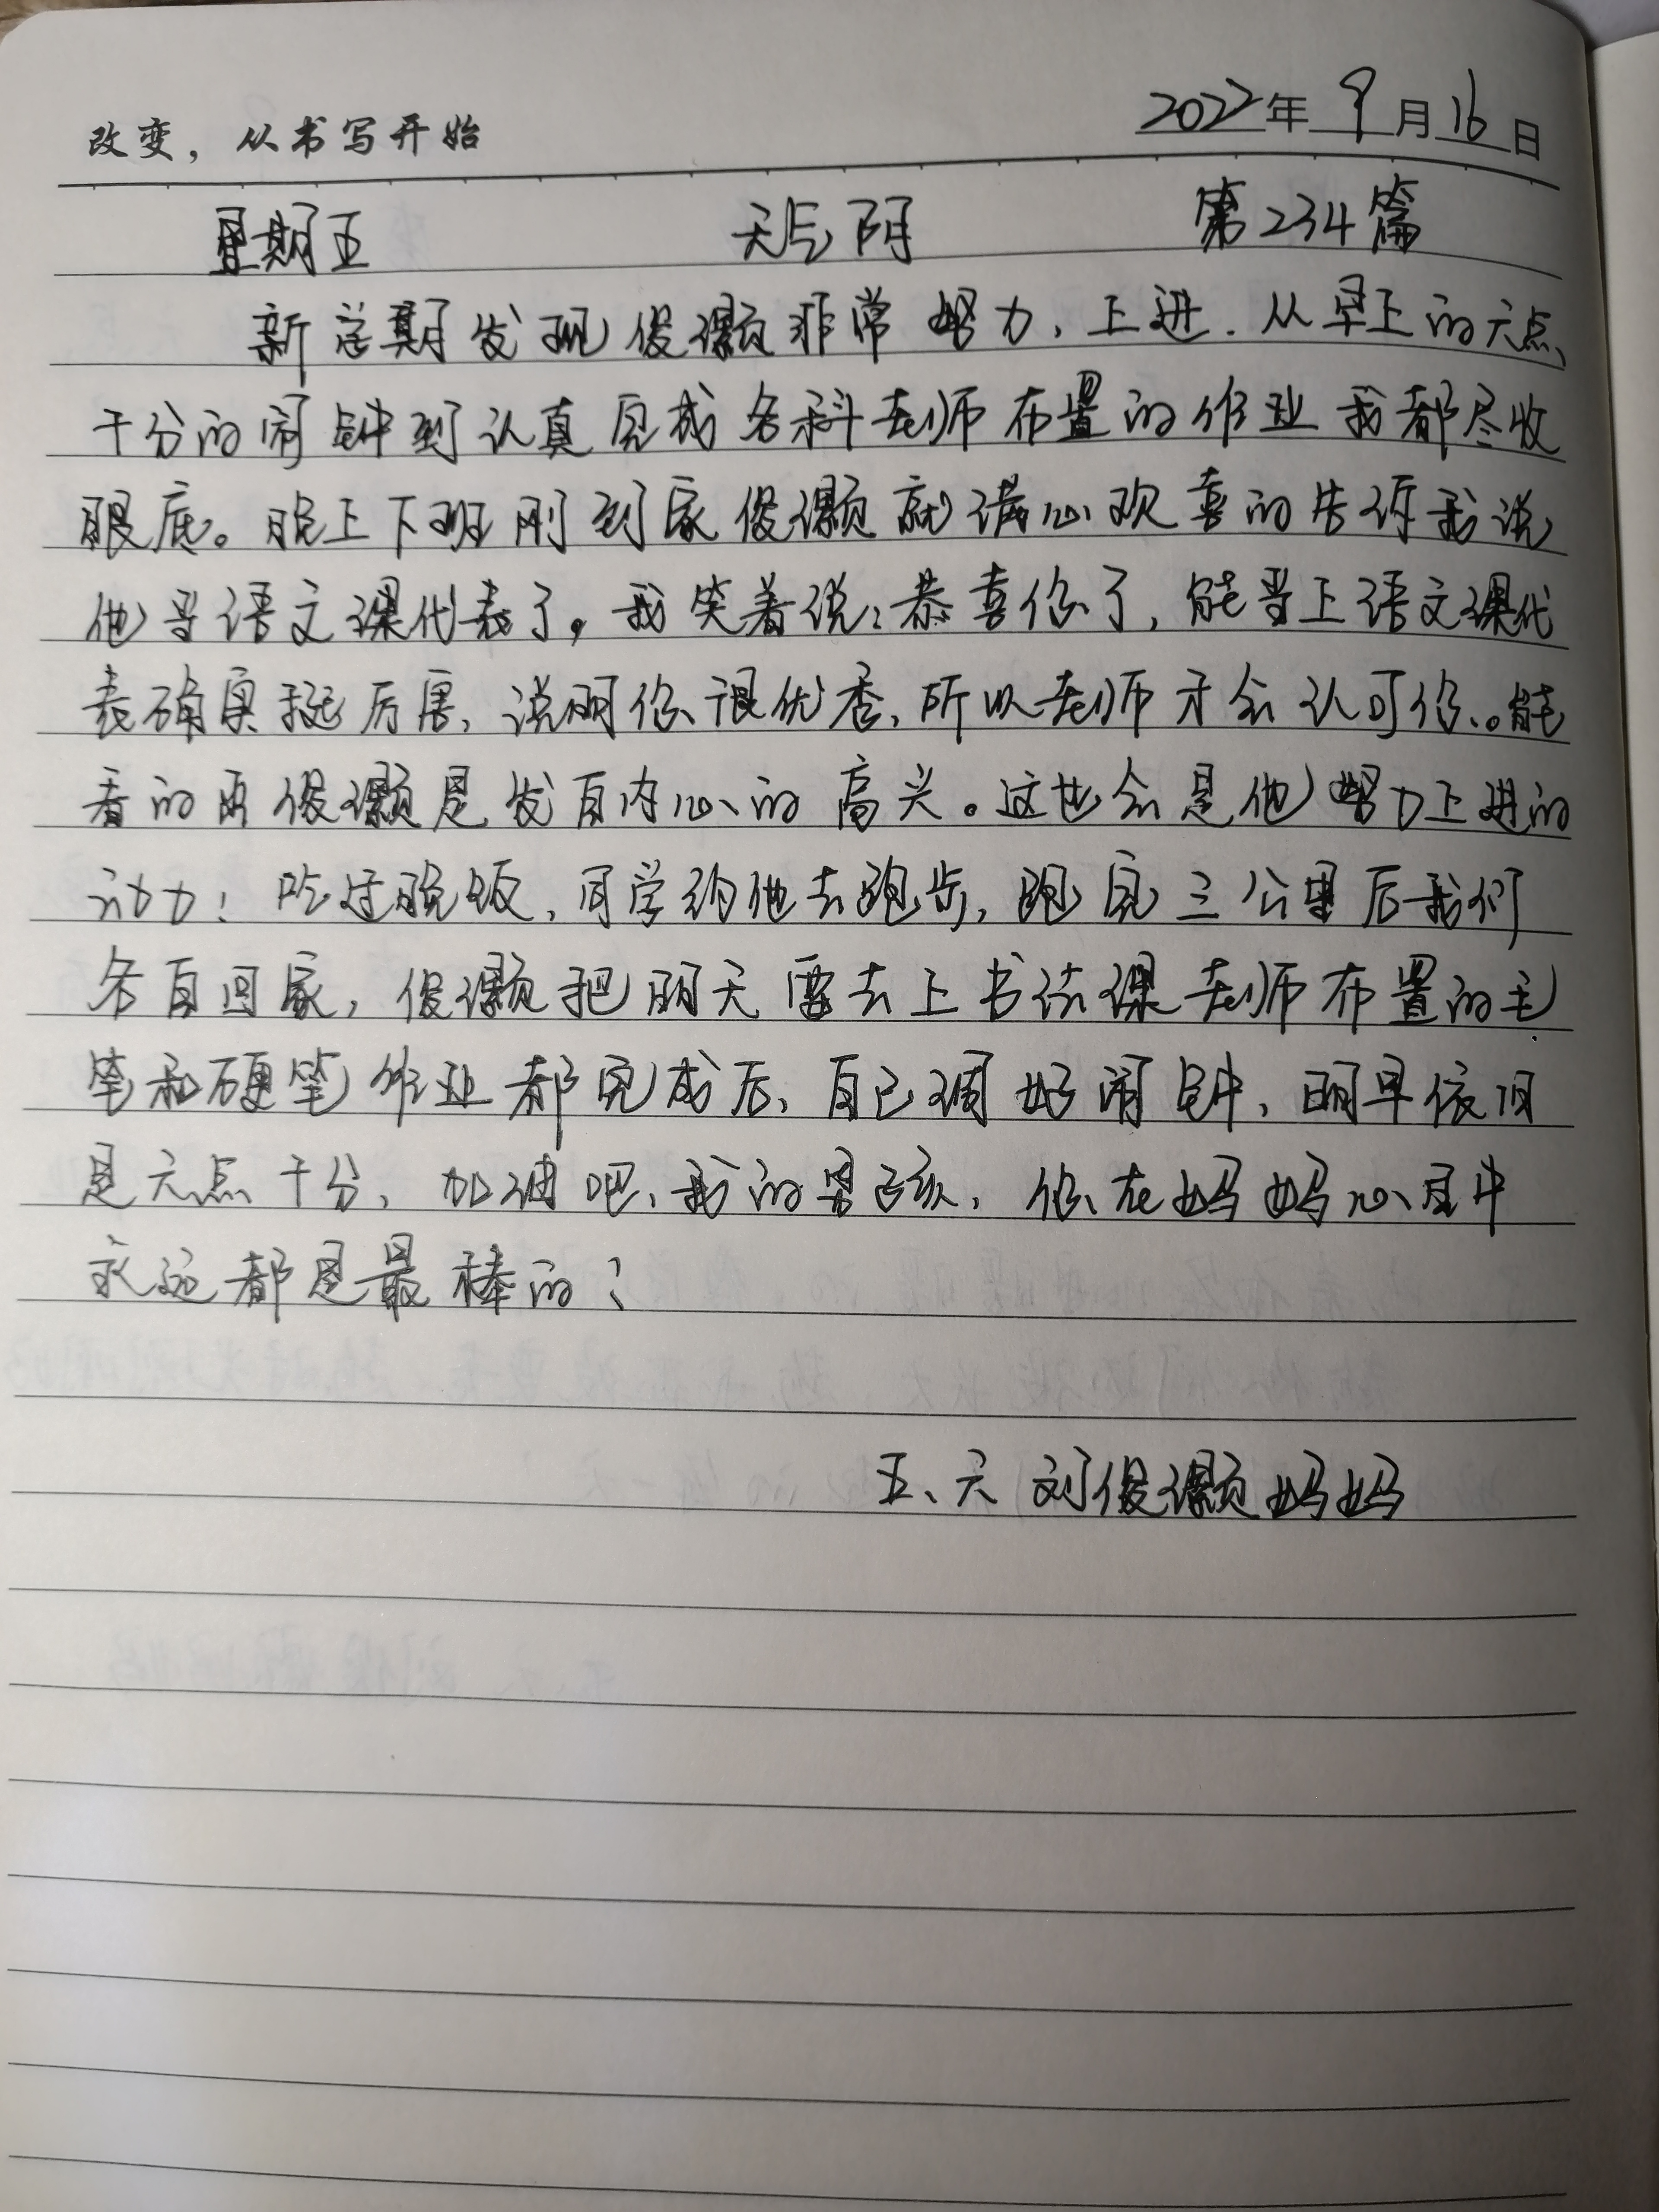 改变，从书写开始
2022年 9月16日
星期五 天气阴 第234篇
新学期发现俊灏非常努力、上进.从早上的六点
十分的闹钟到认真完成各科老师布置的作业我都尽收
眼底。晚上下班刚到家俊灏就满心欢喜的告诉我说
他当语文课代表了。我笑着说：恭喜你了，能当上语文课代
表确实挺厉害，说明你很优秀，所以老师才会认可你。能
看的出俊灏是发自内心的高兴。这也会是他努力上进的
动力！吃过晚饭，同学约他去跑步，跑完三公里后我们
各自回家，俊灏把明天要去上书法课老师布置的毛
笔和硬笔作业都完成后、自己调好闹钟、明早依旧
是六点十分、加油吧、我的男孩，你在妈妈心里中
永远都是最棒的！
五、六 刘俊灏妈妈